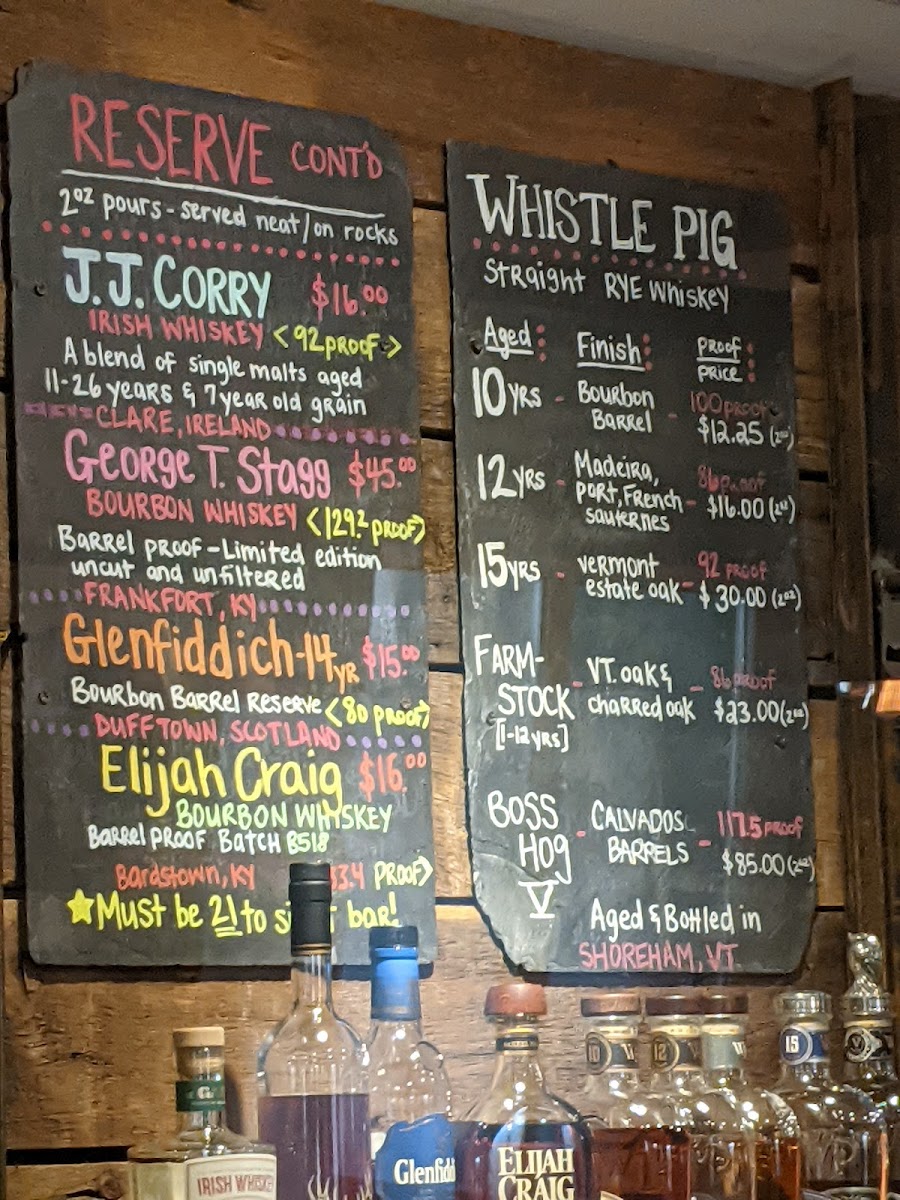 RESERVE CONT'D
2oz pours - served neat/on rocks
J.J. CORRY $16.00
IRISH WHISKEY <92 PROOF>
A blend of single malts aged
11-26 years & 7 year old grain
CLARE, IRELAND
George T. Stagg $45.00
BOURBON WHISKEY <129.2 PROOF>
Barrel proof - Limited edition
uncut and unfiltered
FRANKFORT, KY
Glenfiddich-14yr $15.00
Bourbon Barrel Reserve <80 PROOF>
DUFFTOWN, SCOTLAND
Elijah Craig $16.00
BOURBON WHISKEY
Barrel PROOF BATCH B518
Bardstown, KY 33.4 PROOF>
Must be 21 to bar!
WHISTLE PIG
Straight RYE Whiskey
Aged: Finish: Proof
Price:
10 yrs - Bourbon Barrel - 100 proof
$12.25 (2oz)
12 yrs - Madeira, port, French sauternes - 86 proof
$16.00 (2oz)
15 yrs - vermont estate oak - 92 proof
$30.00 (2oz)
FARM-STOCK [1-12 yrs] - VT. oak & charred oak - 86 proof
$23.00 (2oz)
BOSS HOG V - CALVADOS BARRELS - 117.5 proof
$85.00 (2oz)
Aged & Bottled in
SHOREHAM, VT
IRISH WHISK
Glenfid
ELIJAH
CRAIG
10
12
W
15
V